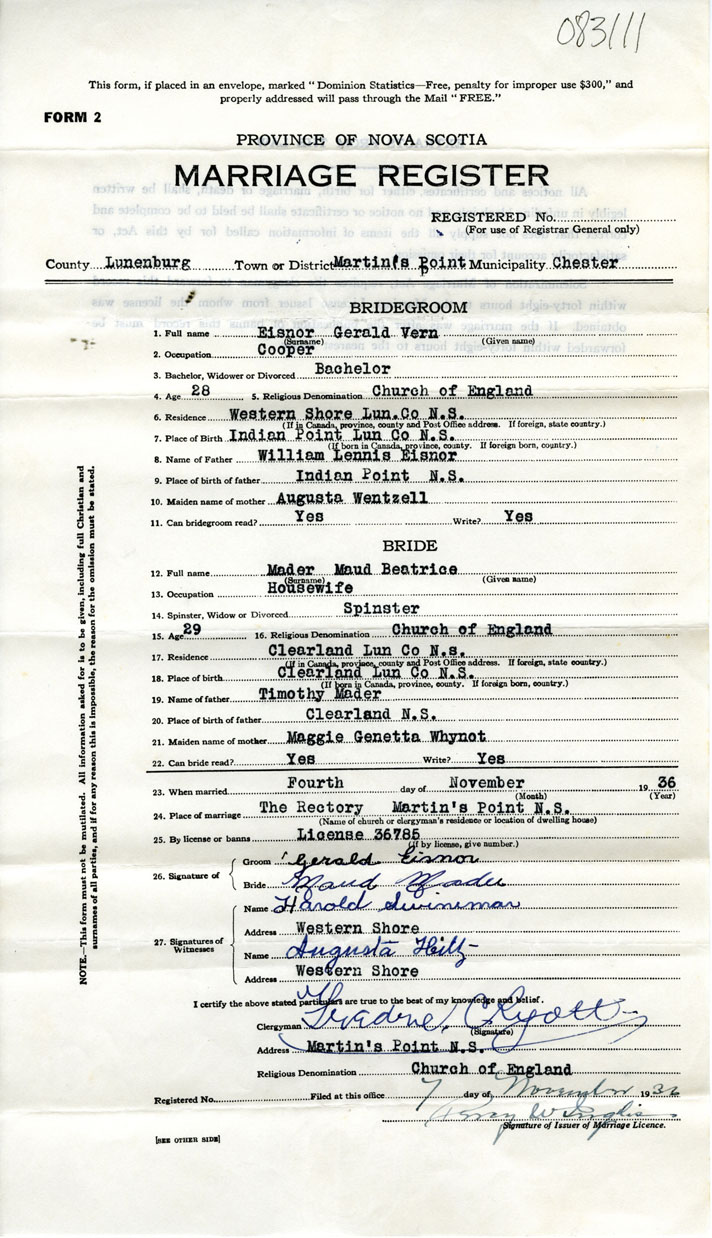 083111
This form, if placed in an envelope, marked "Dominion Statistics—Free, penalty for improper use $300," and
properly addressed will pass through the Mail "FREE."
FORM 2
PROVINCE OF NOVA SCOTIA
MARRIAGE REGISTER
REGISTERED No.
(For use of Registrar General only)
County Lunenburg Town or District Martin's Point Municipality Chester
BRIDEGROOM
1. Full name Eisnor Gerald Vern
(Surname) (Given name)
2. Occupation Cooper
3. Bachelor, Widower or Divorced Bachelor
4. Age 28 5. Religious Denomination Church of England
6. Residence Western Shore Lun.Co N.S.
(If in Canada, province, county and Post Office address. If foreign, state country.)
7. Place of Birth Indian Point Lun Co N.S.
(If born in Canada, province, county. If foreign born, country.)
8. Name of Father William Lennis Eisnor
9. Place of birth of father Indian Point N.S.
10. Maiden name of mother Augusta Wentzell
11. Can bridegroom read? Yes Write? Yes
BRIDE
12. Full name Mader Maud Beatrice
(Surname) (Given name)
13. Occupation Housewife
14. Spinster, Widow or Divorced Spinster
15. Age 29 16. Religious Denomination Church of England
17. Residence Clearland Lun Co N.s.
(If in Canada, province, county and Post Office address. If foreign, state country.)
18. Place of birth Clearland Lun Co N.S.
(If born in Canada, province, county. If foreign born, country.)
19. Name of father Timothy Mader
20. Place of birth of father Clearland N.S.
21. Maiden name of mother Maggie Genetta Whynot
22. Can bride read? Yes Write? Yes
23. When married Fourth day of November 19 36
(Month) (Year)
24. Place of marriage The Rectory Martin's Point N.S.
(Name of church or clergyman's residence or location of dwelling house)
25. By license or banns License 36785
(if by license, give number.)
26. Signature of Groom Gerald Eisnor
Bride Maud Mader
27. Signatures of Witnesses Name Harold
Address Western Shore
Name Augusta Hiltz
Address Western Shore
I certify the above stated particulars are true to the best of my knowledge and belief.
Clergyman
(Signature)
Address Martin's Point N.S.
Religious Denomination Church of England
Registered No. Filed at this office 7 day of November 19 36
Signature of Issuer of Marriage Licence.
[SEE OTHER SIDE]
NOTE.—This form must not be mutilated. All information asked for is to be given, including full Christian and
surnames of all parties, and if for any reason this is impossible, the reason for the omission must be stated.